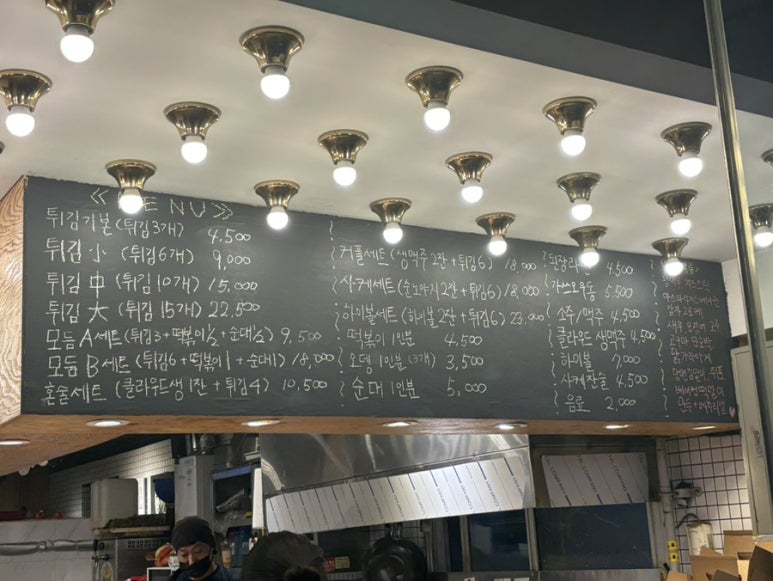 MENU
튀김기본 (튀김3개) 4.500
튀김 小 (튀김6개) 9,000
튀김 中 (튀김 10개) 15,000
튀김 大 (튀김 15개) 22,500
모듬 A세트 (튀김3 + 떡볶이½ + 순대½) 9,500
모듬 B세트 (튀김6 + 떡볶이1 + 순대1) 18,000
혼술세트 (클라우드생1잔 + 튀김4) 10,500
커플세트 (생맥주 2잔 + 튀김6) 18,000
사케세트 (2잔 + 튀김6) 18,000
하이볼세트 (하이볼 2잔 + 튀김6) 23,000
떡볶이 1인분 4,500
오뎅 1인분 (3개) 3,500
순대 1인분 5,000
된장라면 4,500
가쓰오우동 5,500
소주/맥주 4,500
클라우드 생맥주 4,500
하이볼 7,000
사케잔술 4,500
음료 2,000